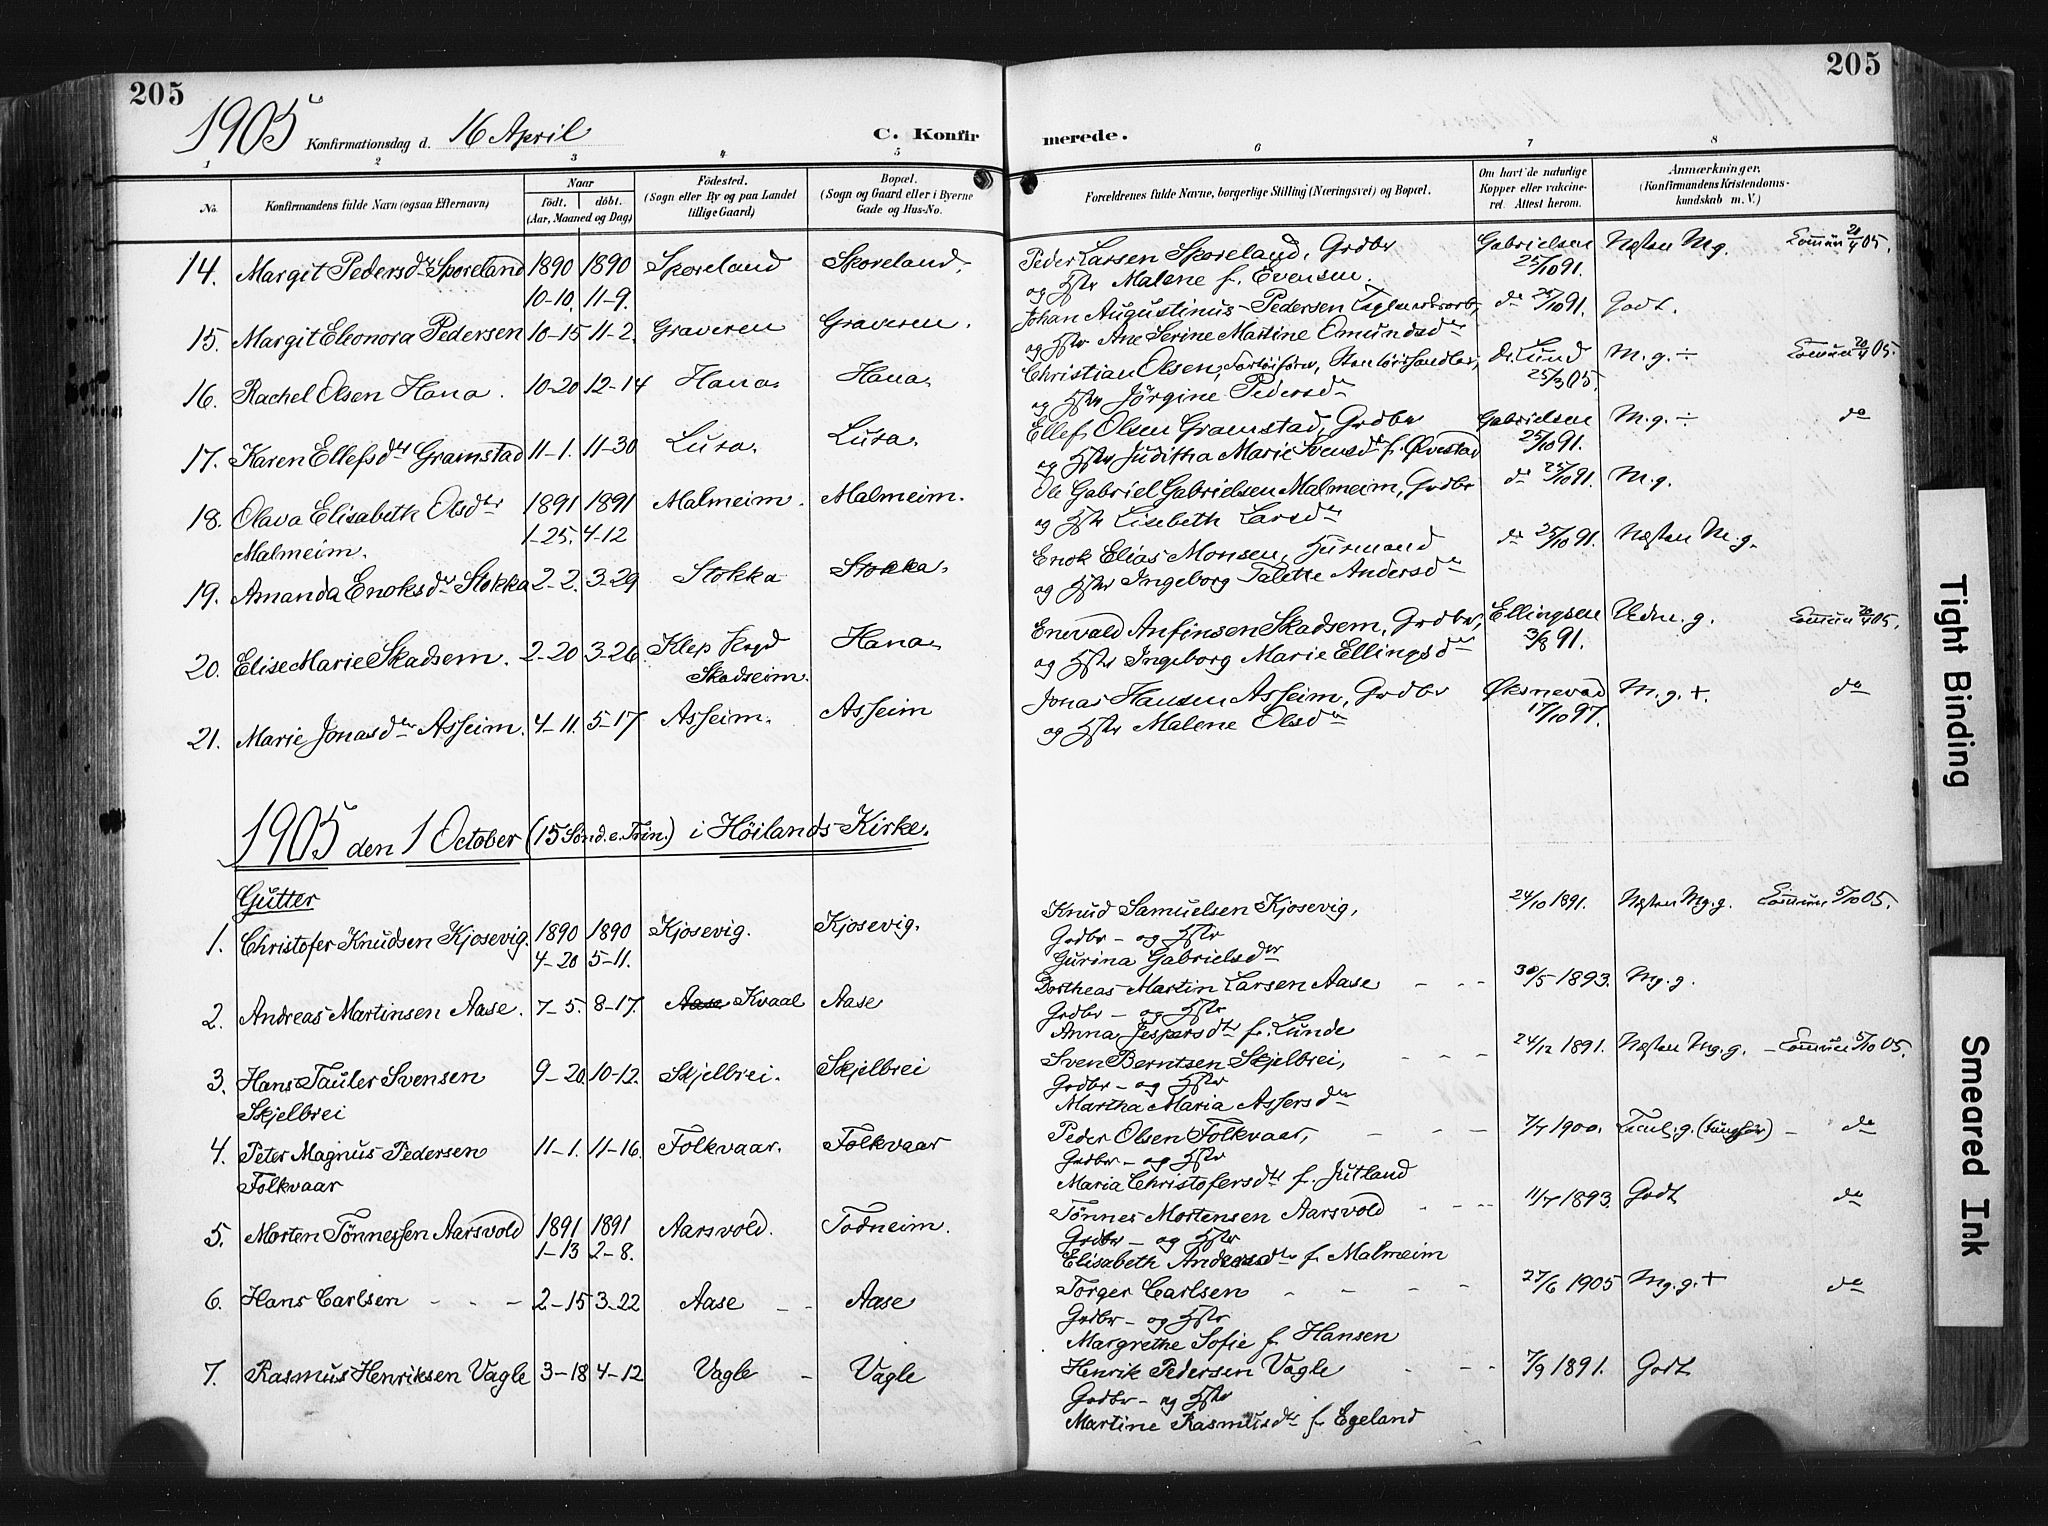 205
205
1905
Konfirmationsdag d. 16 April
C. Konfir
merede.
1 2 3 4 5 6 7 8
No.
Konfirmandens fulde Navn (ogsaa Efternavn)
Naar
født. döbt.
(Aar, Maaned og Dag)
Födested.
(Sogn eller By og paa Landet
tillige Gaard)
Bopæl.
(Sogn og Gaard eller i Byerne
Gade og Hus-No.
Forældrenes fulde Navne, borgerlige Stilling (Næringsvei) og Bopæl.
Om havt de naturlige
Kopper eller vakcine-
ret. Attest herom.
Anmærkninger.
(Konfirmandens Kristendoms-
kundskab m. V.)
14. Margit Pedersdtr Skoreland 1890 1890 Skoreland Skoreland. Peder Larsen Skoreland, Grdbr Gabrielsen Næsten M.g. 20/4 05.
10-10. 11-9. og Hstr Malene f. Evensen. 25/10 91.
15. Margit Eleonora Pedersen 10-15 11-2. Graveren Graveren. Johan Augustinus Pedersen do 25/10 91. Godt.
og Hstr Ane Serine Martine Omundsdtr
16. Rachel Olsen Hana. 10-20 12-14 Hana. Hana. Christian Olsen, Dr. Lund M.g. ÷ 20/4 05.
og Hstr Jørgine Pedersdtr 25/3 05.
17. Karen Ellefsdtr Gramstad 11-1. 11-30 Lura. Lura. Ellef Olsen Gramstad, Grdbr Gabrielsen M.g. ÷ do
og Hstr Juditha Marie Svensdtr f. Øvestad 25/10 91.
18. Olava Elisabeth Olsdtr 1891 1891 Malmeim. Malmeim. Ole Gabriel Gabrielsen Malmeim, Grdbr do 25/10 91. M.g.
Malmeim. 1-25. 4-12 og Hstr Lisebeth Larsdtr
19. Amanda Enoksdtr Stokka 2-2. 3-29 Stokka Stokka. Enok Elias Monsen, Husmand do 25/10 91. Næsten M.g.
og Hstr Ingeborg Talette Andersdtr
20. Elise Marie Skadsem. 2-20 3-26 Klep Hana. Enevald Anfinsen Skadsem, Grdbr, Ellingsen 20/4 05.
Skadseim. og Hstr Ingeborg Marie Ellingsdtr 3/8 91.
21. Marie Jonasdtr Asheim. 4-11. 5-17 Asheim. Asheim Jonas Hansen Asheim, Grdbr Øksnevad M.g. + do
og Hstr Malene Olsdtr 17/10 97.
1905 den 1 October (15 Sønd. e. Trin.) i Höilands Kirke.
Gutter
1. Christofer Knudsen Kjosevig. 1890 1890 Kjosevig. Kjosevig. Knud Samuelsen Kjosevig, 24/10 1891. Næsten Mg.g. 5/10 05.
4-20 5-11. Grdbr - og Hstr
Gurina Gabrielsdtr
2. Andreas Martinsen Aase. 7-5. 8-17. Aase Kvaal Aase Dortheas Martin Larsen Aase 30/5 1893. Mg.g.
Grdbr - og Hstr
Anna Jespersdtr f. Lunde
3. Hans Tauler Svensen 9-20. 10-12. Skjelbrei. Skjelbrei Sven Berntsen Skjelbrei, 24/12 1891. Næsten Mg.g. 5/10 05.
Skjelbrei Grdbr - og Hstr
Martha Maria Assersdtr
4. Peter Magnus Pedersen 11-1. 11-16. Folkvaar. Folkvaar Peder Olsen Folkvaar, 7/7 1900. do
Folkvaar Grdbr - og Hstr
Maria Christofersdtr f. Jutland
5. Morten Tönnessen Aarsvold 1891 1891 Aarsvold. Todneim. Tönnes Mortensen Aarsvold 11/7 1893. Godt do
1-13 2-8. Grdbr - og Hstr
Elisabeth Andersdtr f. Malmeim
6. Hans Carlsen 2-15 3-22 Aase Aase Torger Carlsen 27/6 1905 Mg.g. + do
Grdbr - og Hstr
Margrethe Sofie f. Hansen
7. Rasmus Henriksen Vagle 3-18 4-12 Vagle Vagle Henrik Pedersen Vagle 7/9 1891. Godt
Grdbr - og Hstr
Martine Rasmusdtr f. Egeland
Tight Binding
Smeared Ink